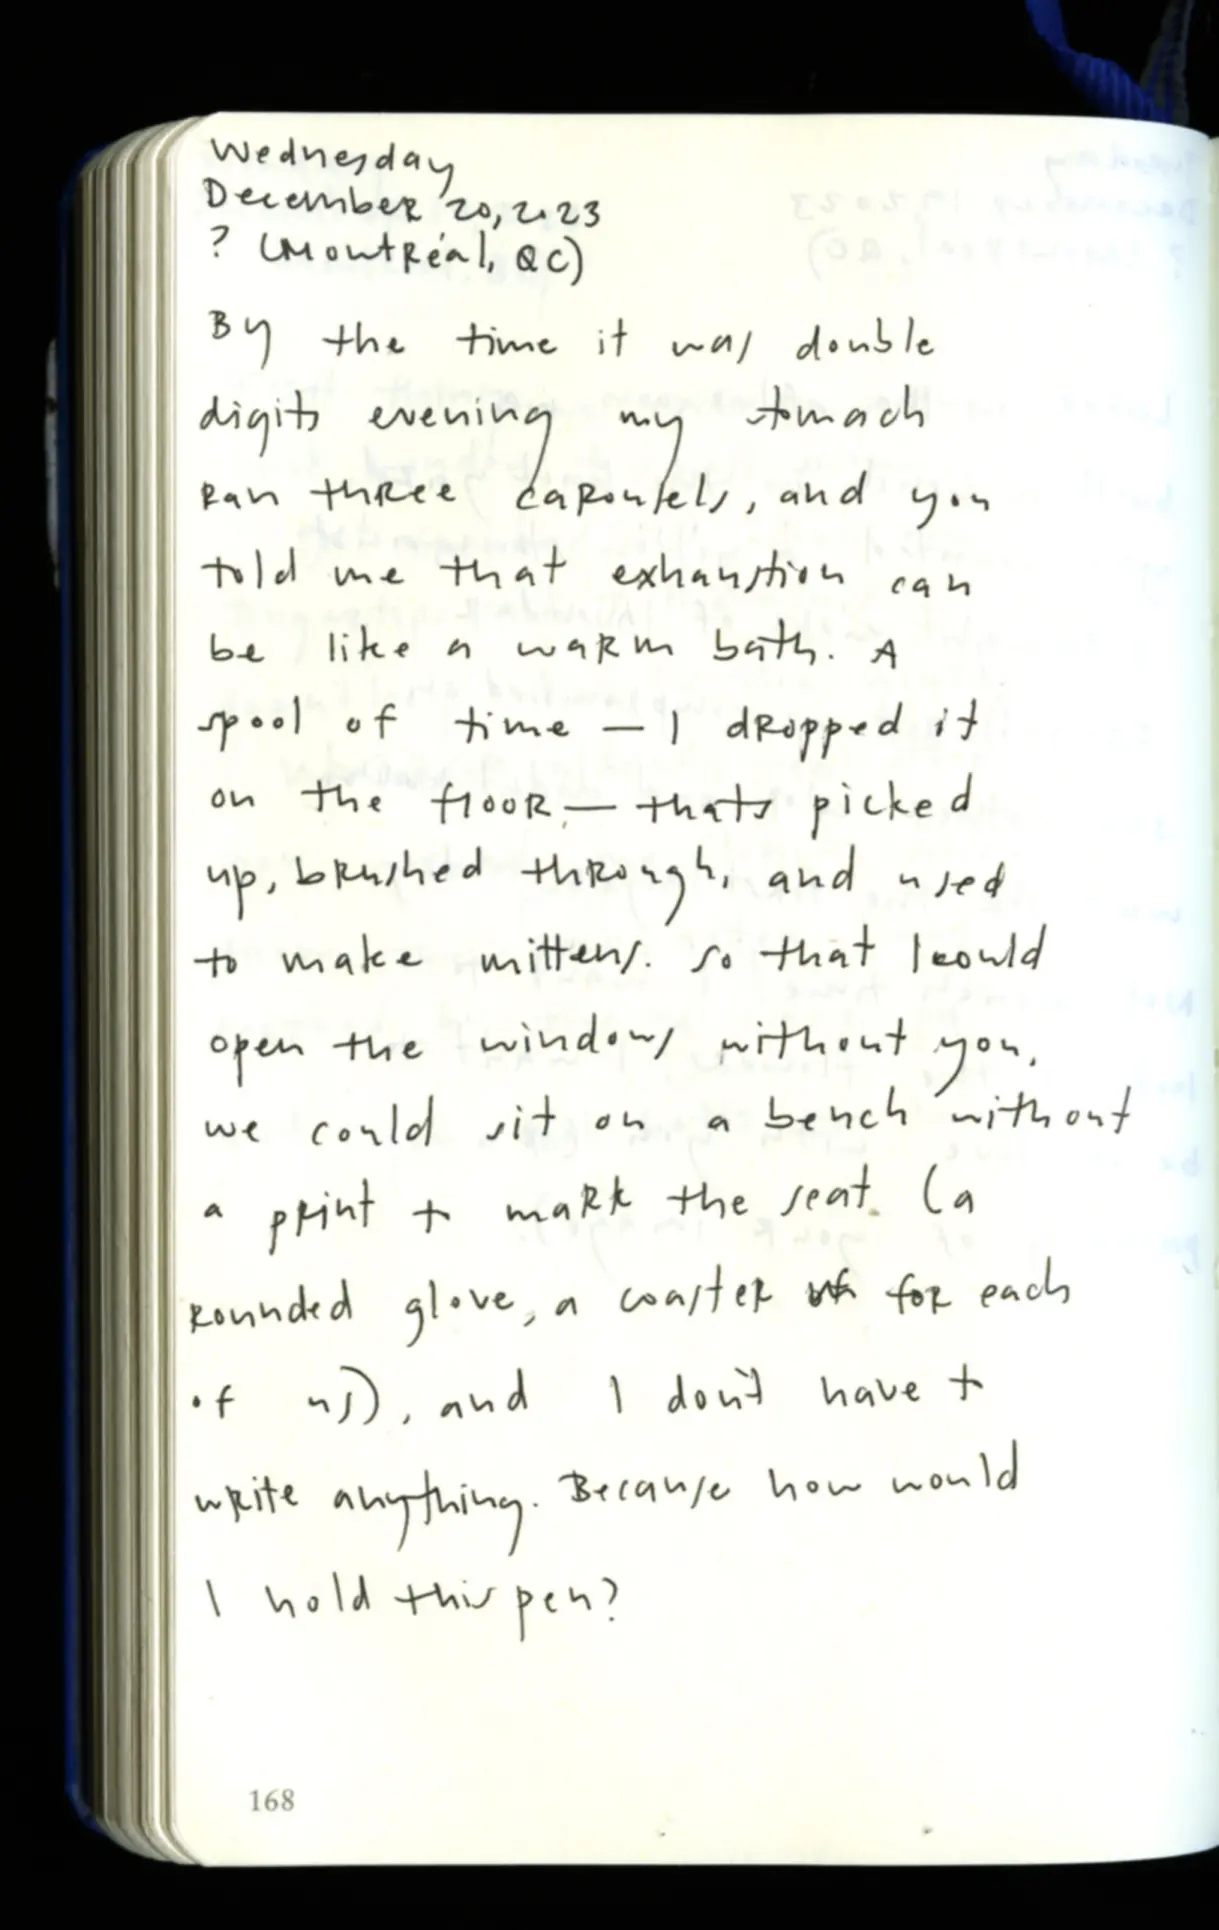 Wednesday
December 20, 2023
? (Montréal, QC)
By the time it was double
digits evening my stomach
ran three carousels, and you
told me that exhaustion can
be like a warm bath. A
spool of time — I dropped it
on the floor, — thats picked
up, brushed through, and used
to make mittens. So that I could
open the windows without you,
we could sit on a bench without
a print to mark the seat. (a
rounded glove, a coaster for each
of us), and I don't have to
write anything. Because how would
I hold this pen?
168